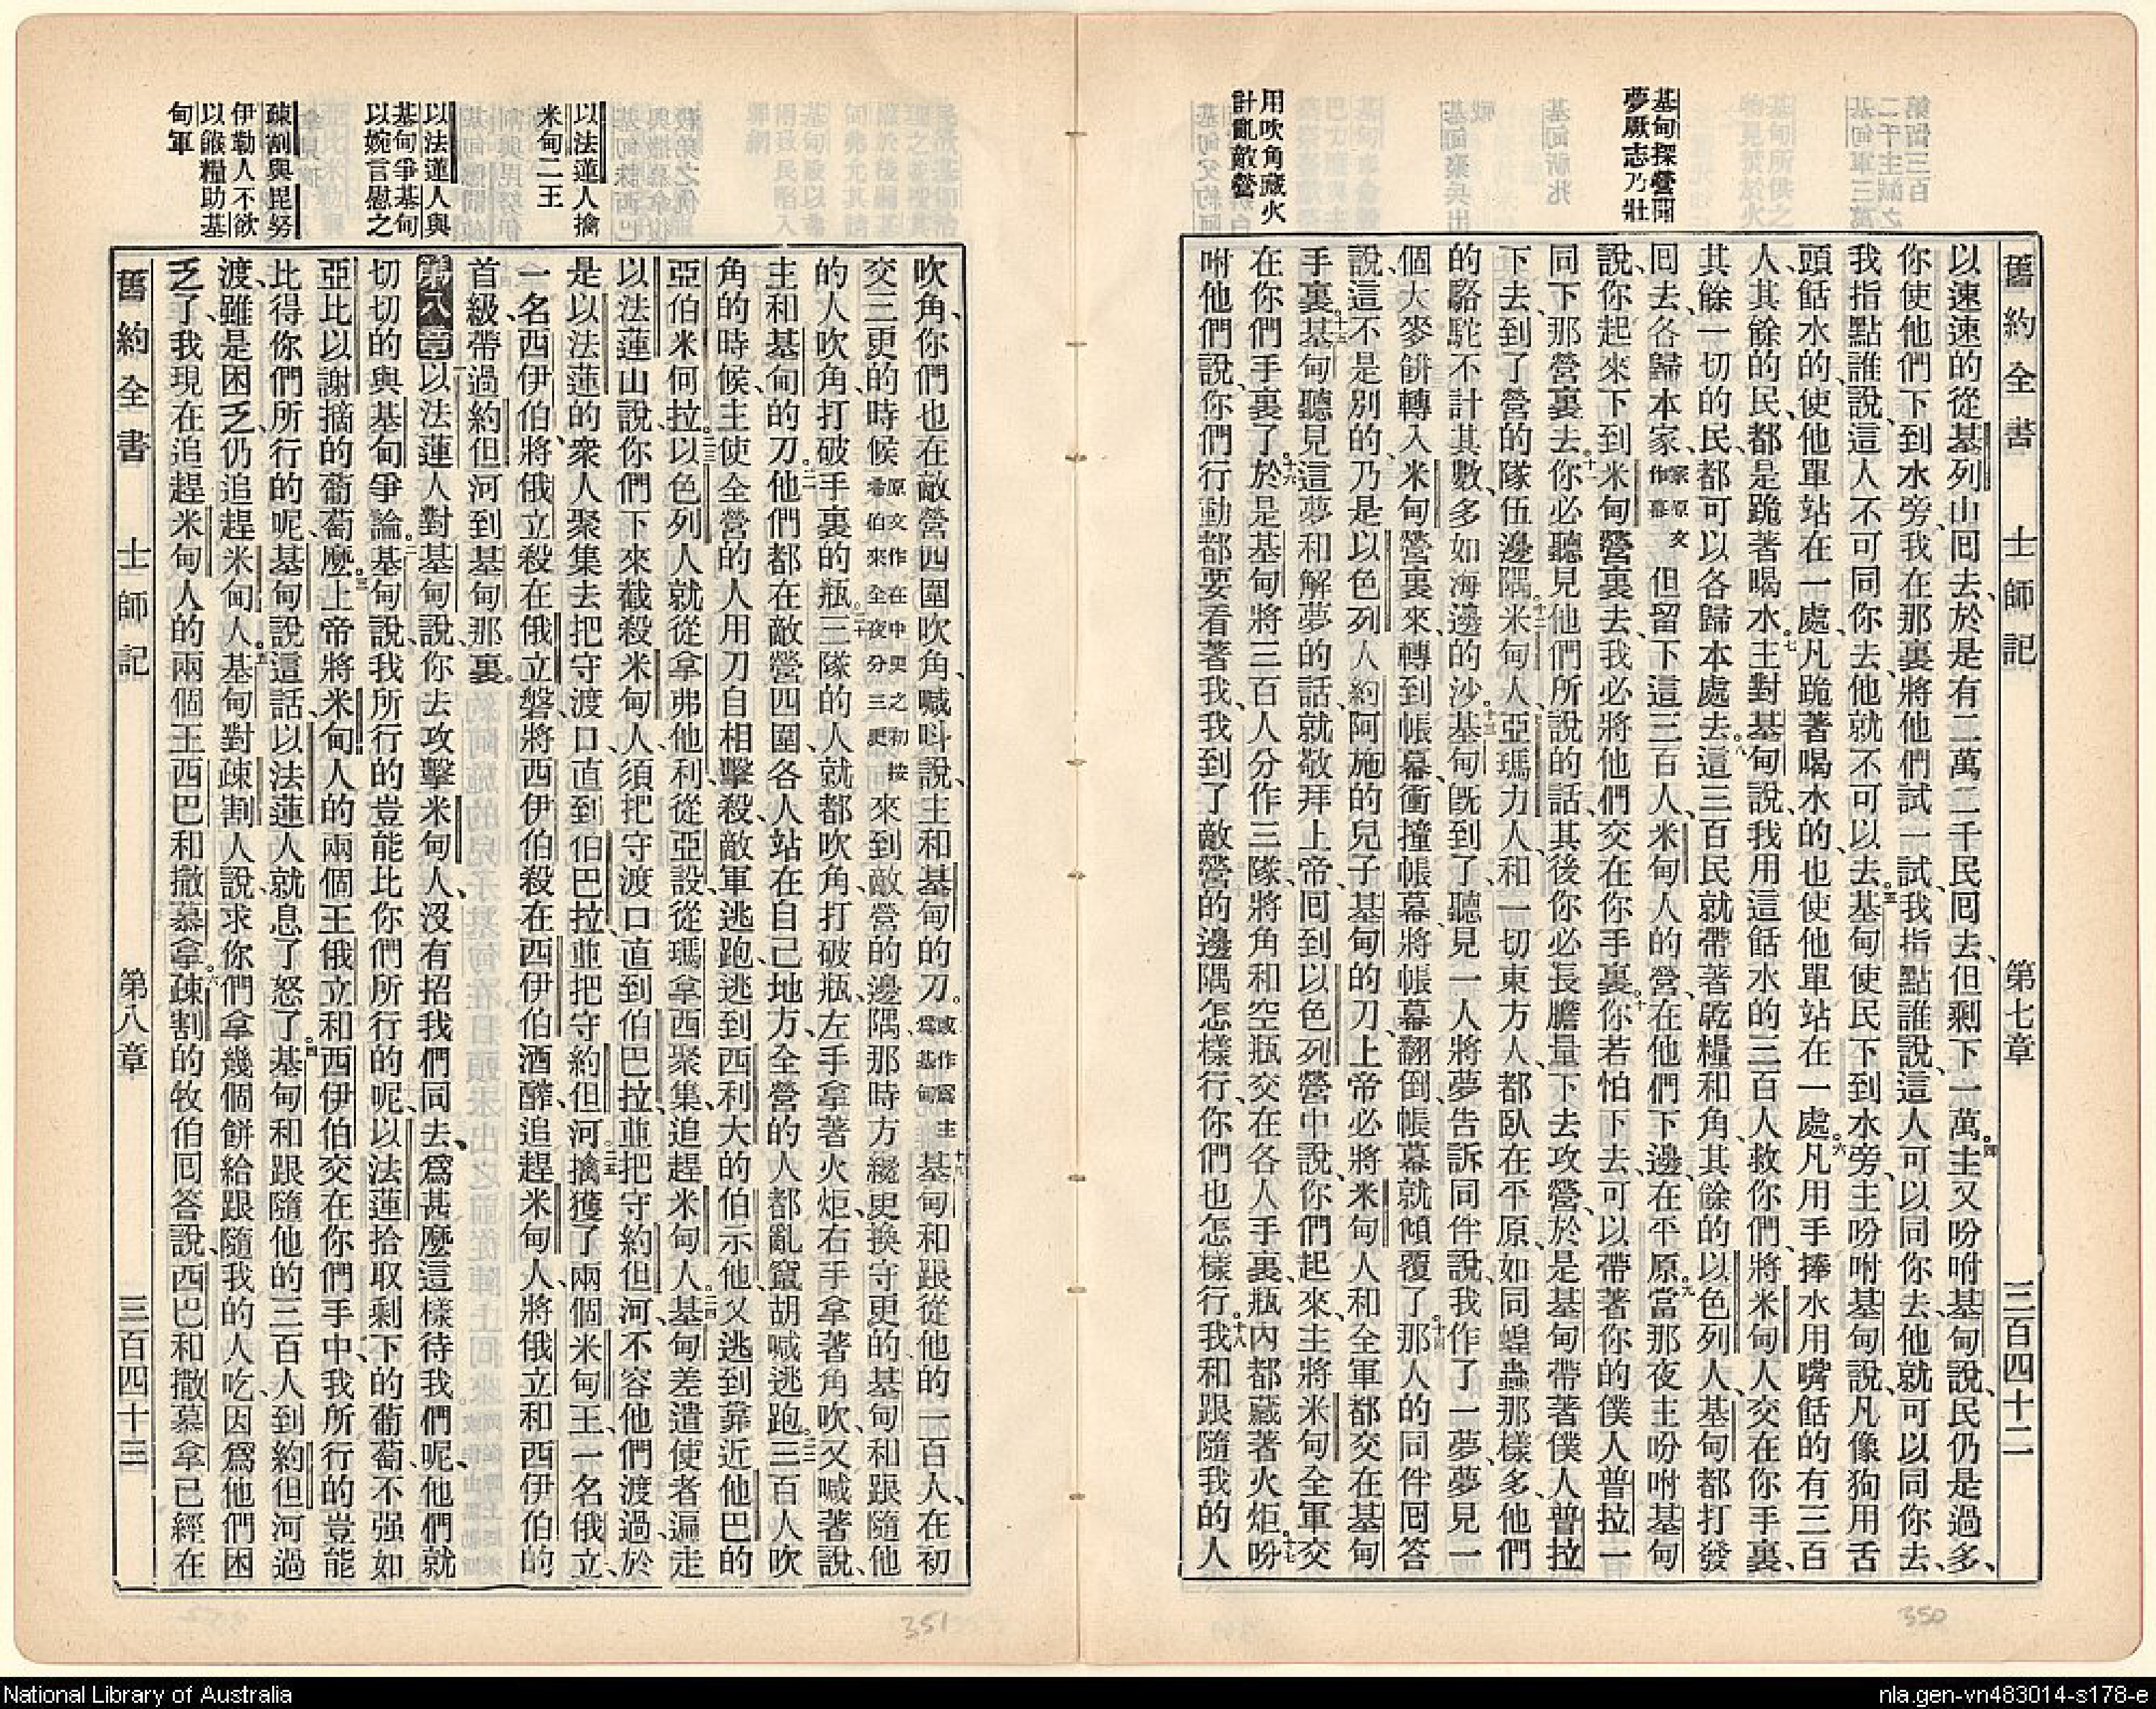 舊約全書 士師記 第七章 三百四十二
基甸探營聞
夢厥志乃壯
用吹角藏火
計亂敵營
以速速的從基列山回去、於是有二萬二千民回去、但剩下一萬。四主又吩咐基甸說、民仍是過多、
你使他們下到水旁、我在那裏將他們試一試、我指點誰說、這人可以同你去、他就可以同你去、
我指點誰說、這人不可同你去、他就不可以去。五基甸使民下到水旁、主吩咐基甸說、凡像狗用舌
頭餂水的、使他單站在一處、凡跪著喝水的、也使他單站在一處。六凡用手捧水用嘴餂的有三百
人、其餘的民、都是跪著喝水。七主對基甸說、我用這餂水的三百人救你們、將米甸人交在你手裏、
其餘一切的民、都可以各歸本處去。八這三百民就帶著乾糧和角、其餘的以色列人、基甸都打發
回去、各歸本家、家原文作幕 但留下這三百人、米甸人的營、在他們下邊、在平原。九當那夜主吩咐基甸
說、你起來下到米甸營裏去、我必將他們交在你手裏。十你若怕下去、可以帶著你的僕人普拉一
同下那營裏去。十一你必聽見他們所說的話、其後你必長膽量下去攻營、於是基甸帶著僕人普拉
下去、到了營的隊伍邊隅。十二米甸人、亞瑪力人、和一切東方人、都臥在平原、如同蝗蟲那樣多、他們
的駱駝不計其數、多如海邊的沙。十三基甸旣到了、聽見一人將夢告訴同伴說、我作了一夢、夢見一
個大麥餅轉入米甸營裏來、轉到帳幕、衝撞帳幕、將帳幕翻倒、帳幕就傾覆了。十四那人的同伴回答
說、這不是別的、乃是以色列人約阿施的兒子基甸的刀、上帝必將米甸人和全軍都交在基甸
手裏。十五基甸聽見這夢和解夢的話、就敬拜上帝、回到以色列營中說、你們起來、主將米甸全軍交
在你們手裏了。十六於是基甸將三百人分作三隊、將角和空瓶交在各人手裏、瓶內都藏著火炬。十七吩
咐他們說、你們行動都要看著我、我到了敵營的邊隅怎樣行、你們也怎樣行。十八我和跟隨我的人
以法蓮人擒
米甸二王
以法蓮人與
基甸爭基甸
以婉言慰之
疎割與毘努
伊勒人不欲
以餱糧助基
甸軍
吹角、你們也在敵營四圍吹角、喊呌說、主和基甸的刀。或作爲主爲基甸 十九基甸和跟從他的一百人、在初
交三更的時候 原文作在中更之初按希伯來全夜分三更 來到敵營的邊隅、那時方纔更換守更的、基甸和跟隨他
的人吹角、打破手裏的瓶。二十三隊的人就都吹角、打破瓶、左手拿著火炬、右手拿著角吹、又喊著說、
主和基甸的刀。二一他們都在敵營四圍、各人站在自己地方、全營的人都亂竄胡喊逃跑。二二三百人吹
角的時候、主使全營的人用刀自相擊殺、敵軍逃跑、逃到西利大的伯示他、又逃到靠近他巴的
亞伯米何拉。二三以色列人就從拿弗他利、從亞設、從瑪拿西聚集、追趕米甸人。二四基甸差遣使者遍走
以法蓮山說、你們下來截殺米甸人、須把守渡口、直到伯巴拉、並把守約但河、不容他們渡過、於
是以法蓮的衆人聚集、去把守渡口、直到伯巴拉、並把守約但河。二五擒獲了兩個米甸王、一名俄立、
一名西伊伯、將俄立殺在俄立磐、將西伊伯殺在西伊伯酒醡、追趕米甸人、將俄立和西伊伯的
首級、帶過約但河到基甸那裏。
第八章 以法蓮人對基甸說、你去攻擊米甸人、沒有招我們同去、爲甚麼這樣待我們呢、他們就
切切的與基甸爭論。二基甸說、我所行的豈能比你們所行的呢、以法蓮拾取剩下的葡萄、不强如
亞比以謝摘的葡萄麼。三上帝將米甸人的兩個王俄立和西伊伯交在你們手中、我所行的豈能
比得你們所行的呢、基甸說這話、以法蓮人就息了怒了。四基甸和跟隨他的三百人到約但河過
渡、雖是困乏、仍追趕米甸人。五基甸對疎割人說、求你們拿幾個餅給跟隨我的人吃、因爲他們困
乏了、我現在追趕米甸人的兩個王西巴和撒慕拿。六疎割的牧伯回答說、西巴和撒慕拿已經在
舊約全書 士師記 第八章 三百四十三
350
351
National Library of Australia
nla.gen-vn483014-s178-e